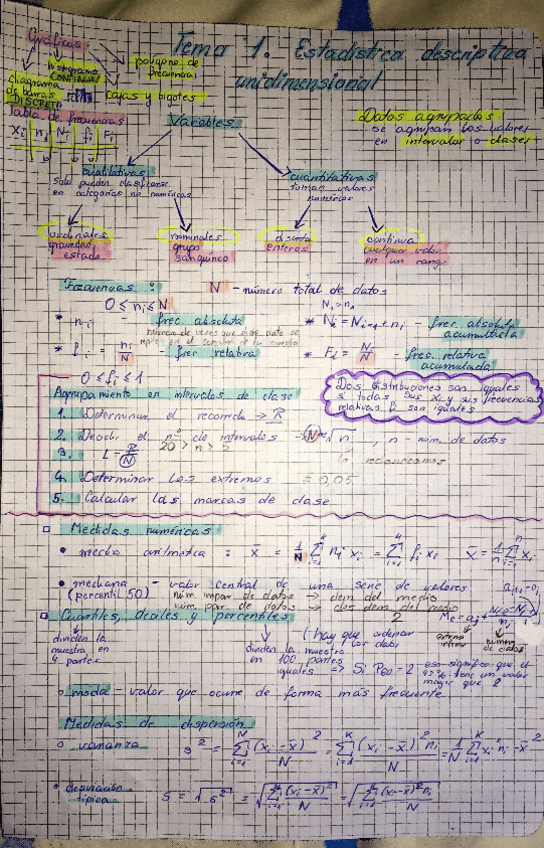 Tema 1. Estadística descriptiva
unidimensional
Gráficas
histograma
CONTINUAS
polígono de
frecuencias
diagrama
de barras
DISCRETO
cajas y bigotes
Tabla de frecuencias
Xi ni Ni fi Fi
Variables
Datos agrupados:
se agrupan los valores
en intervalos o clases
cualitativas
Solo pueden clasificarse
en categorías no numéricas
cuantitativas
toman valores
numéricos
ordinales
gravedad,
estado
nominales
grupo
sanguíneo
discreta
enteros
continua
cualquier valor
en un rango
Frecuencias: N - número total de datos
0 ≤ ni ≤ N
N1 = n1
* ni - frec. absoluta
número de veces que dicho dato se
* Ni = Ni-1 + ni - frec. absoluta
acumulada
* fi = ni/N - frec. relativa
* Fi = Ni/N - frec. relativa
acumulada
0 ≤ fi ≤ 1
Dos distribuciones son iguales
si todas sus xi y sus frecuencias
relativas fi son iguales
Agrupamiento en intervalos de clase
1. Determinar el recorrido → R
2. Decidir el nº de intervalos √n, n - núm. de datos
20 > n >
redondeamos
3. L = R/N
4. Determinar los extremos = 0,05
5. Calcular las marcas de clase
Medidas numéricas
• media aritmética : x̄ = 1/N Σ ni xi = Σ fi xi x̄ = 1/n Σ xi
• mediana - valor central de una serie de valores
(percentil 50) núm. impar de datos → dem. del medio
núm. par de datos → dos dem. del medio
2
Cuartiles, deciles y percentiles
dividen la
muestra en
4 partes
dividen la muestra
en 100 partes
iguales
(hay que ordenar
los datos
⇒ Si P60 = 2 eso significa que el
tiene un valor
mayor que 2
número
de datos
o moda = valor que ocurre de forma más frecuente
Medidas de dispersión
o varianza s² = Σ (xi - x̄)²/N = Σ (xi - x̄)² ni/N = 1/N Σ xi² ni - x̄²
• desviación
típica s = √s² = √Σ(xi - x̄)²/N = √Σ(xi - x̄)² ni/N